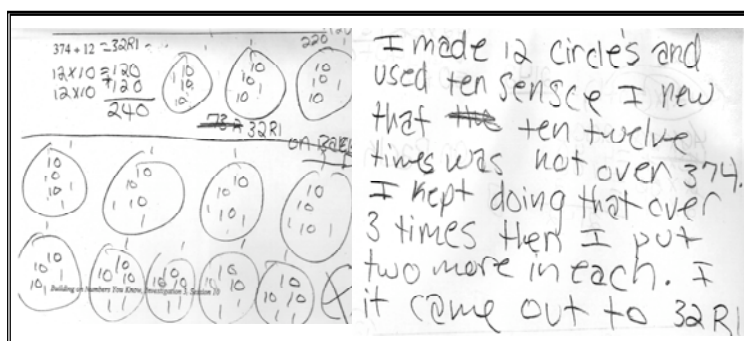 374 ÷ 12 = 32R1
220
12x10 = 120
12x10 +120
240
32R1
on Back
10 10 10 1
10 10 10 1
10 10 10 1
10 10 10 1 1
10 10 10 1 1
10 10 10 1 1
10 10 10 1 1
10 10 10 1 1
10 10 10 1 1
10 10 10 1 1
10 10 10 1 1
10 10 10 1 1
Building on Numbers You Know, Investigation 3, Session 10
I made 12 circle's and
used ten sensce I new
that ten twelve
times was not over 374.
I kept doing that over
3 times then I put
two more in each. I
it came out to 32 R1